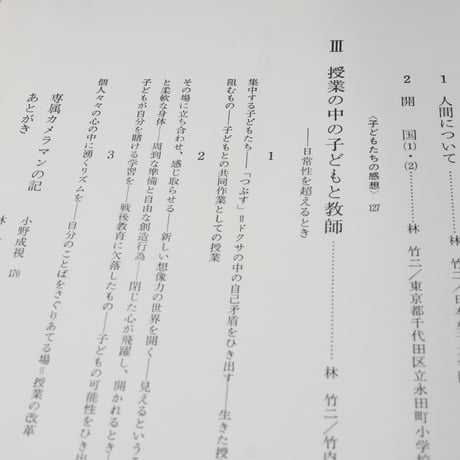 1 人間について……林 竹二／
2 開 国(1)・(2)……林 竹二／東京都千代田区立永田町小学校
〈子どもたちの感想〉127
Ⅲ 授業の中の子どもと教師……林 竹二／竹内
――日常性を超えるとき
1
集中する子どもたち――「つぶす」＝ドクサの中の自己矛盾をひき出す――生きた授
阻むもの――子どもとの共同作業としての授業
2
その場に立ち合わせ、感じ取らせる――新しい想像力の世界を開く――見えるという
と柔軟な身体――周到な準備と自由な創造行為――閉じた心が飛躍し、開かれるとき
子どもが自分を賭ける学習を――戦後教育に欠落したもの――子どもの可能性をひき出
3
個人々々の心の中に湧くリズムを――自分のことばをさぐりあてる場＝授業の改革
専属カメラマンの記 小野成視 170
あとがき 林